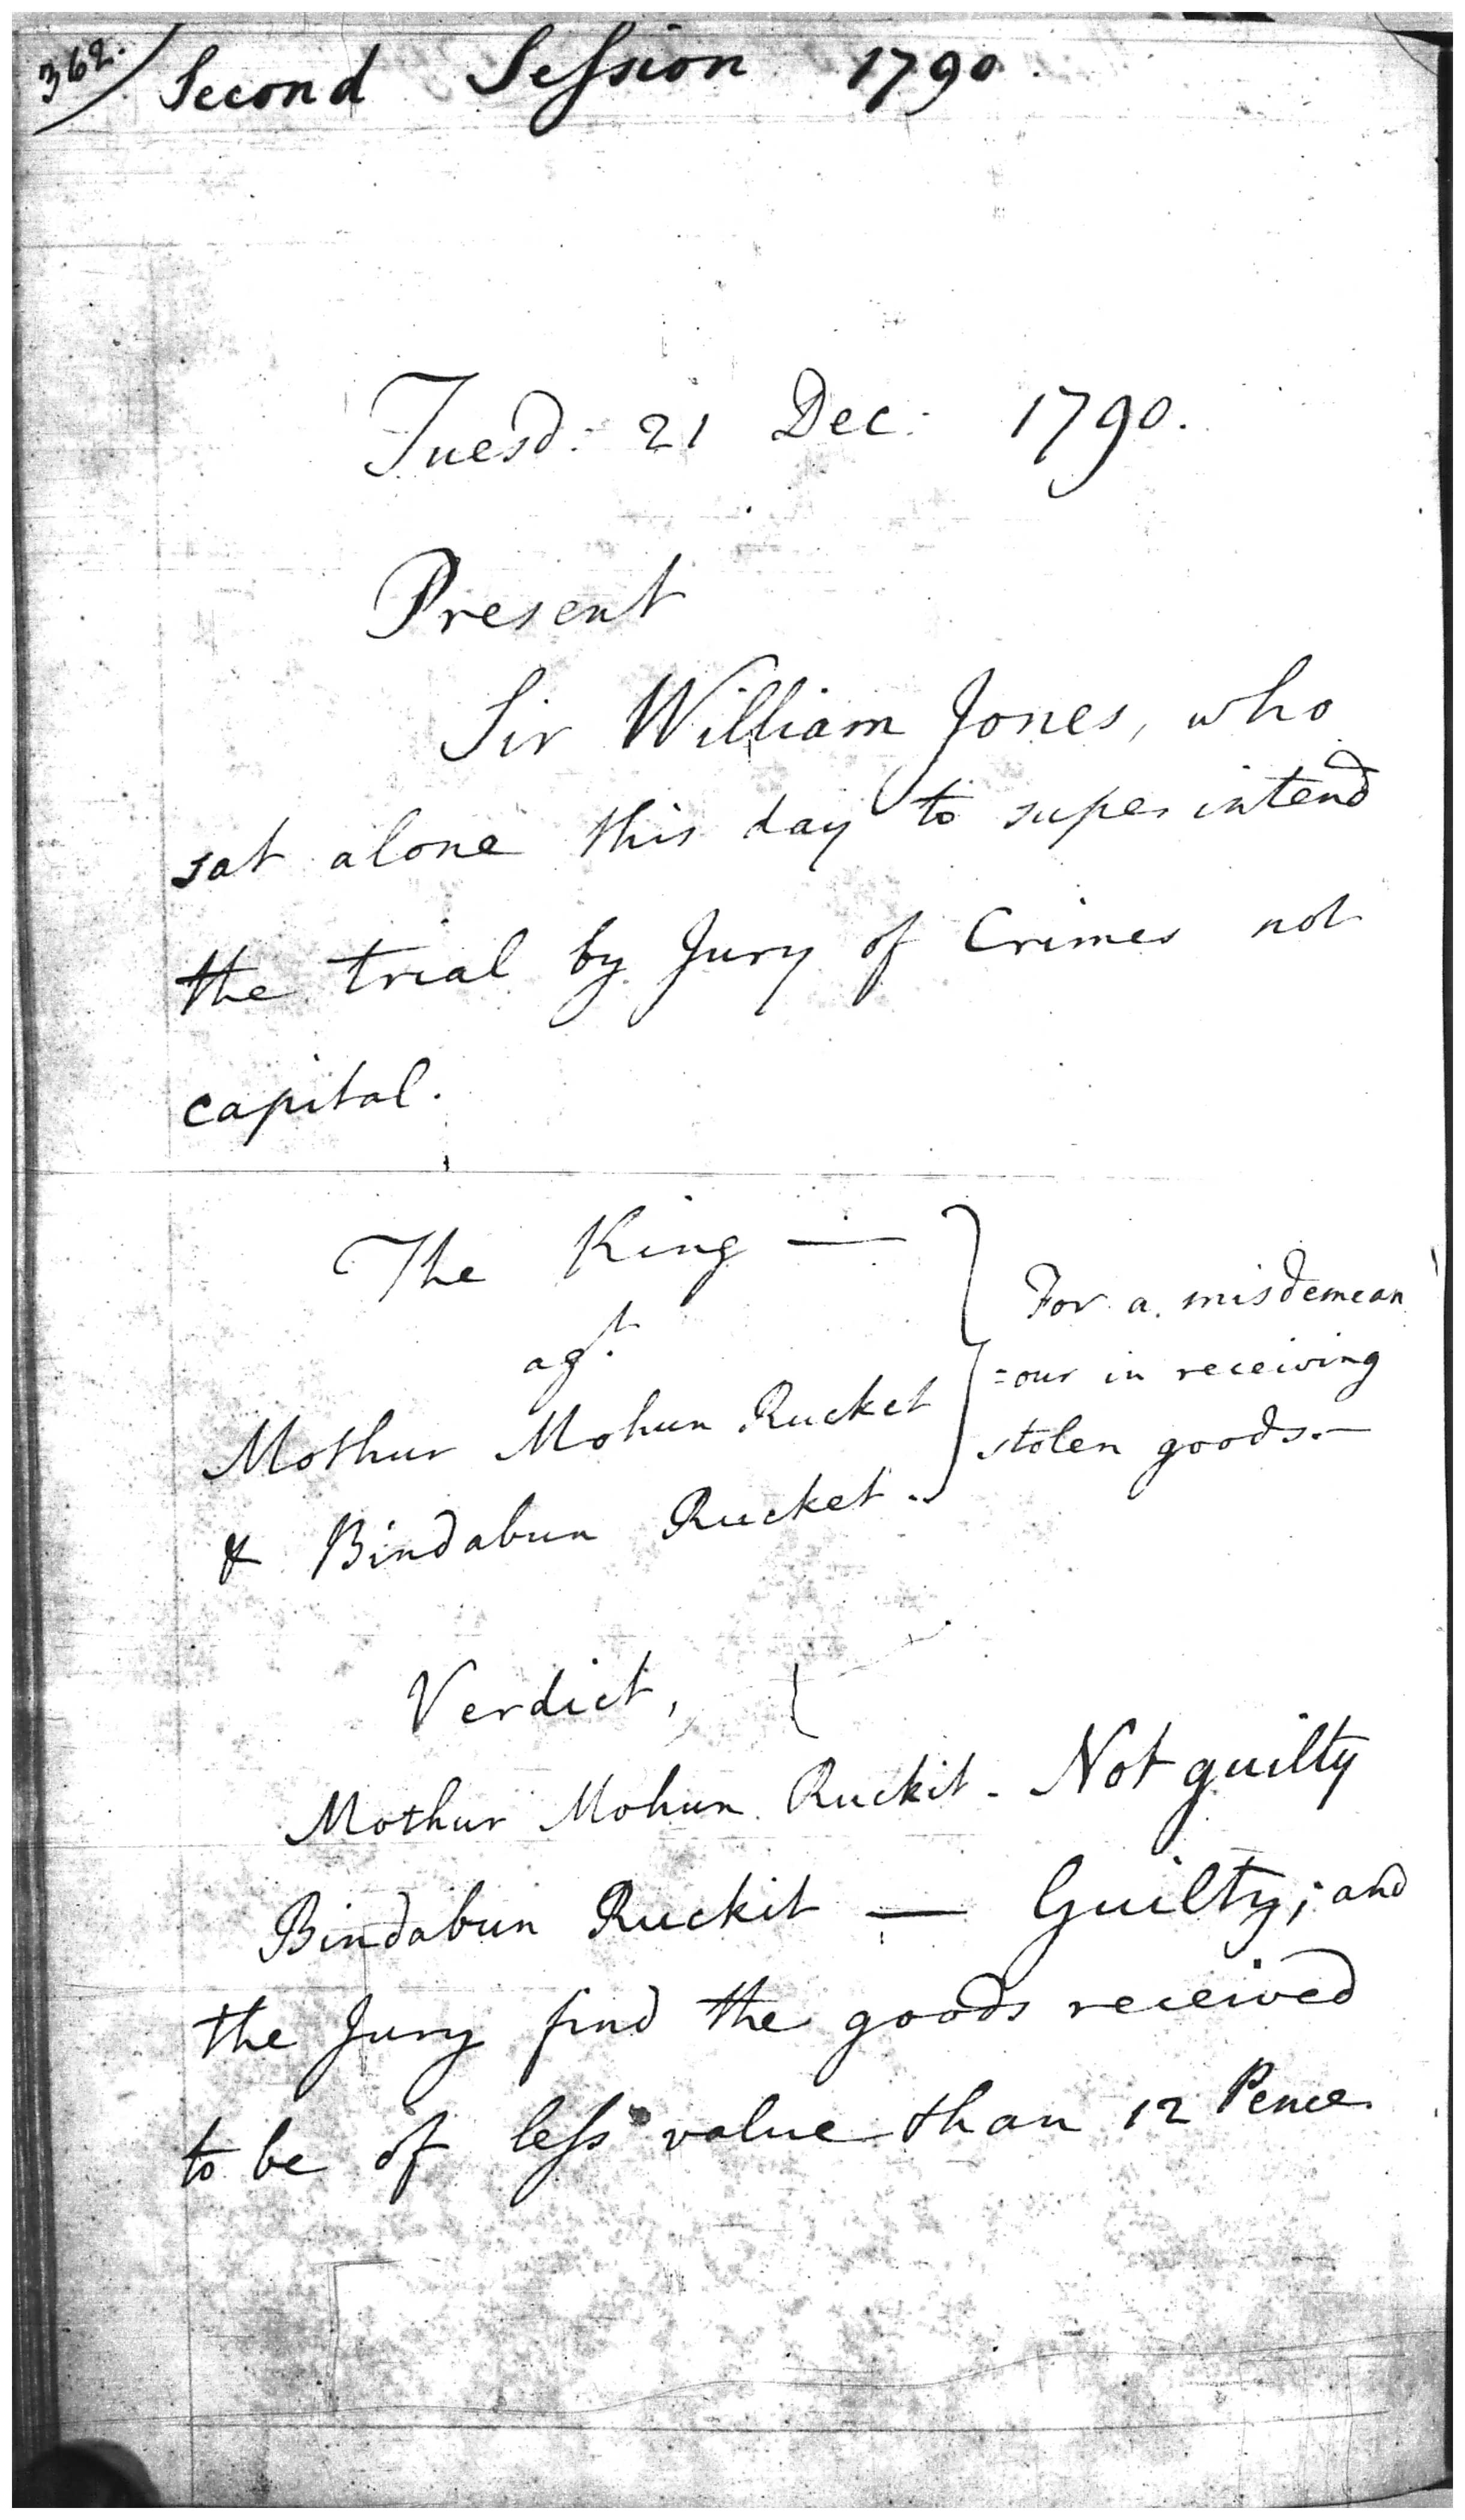 362.
Second Session 1790.
Tuesd: 21 Dec: 1790.
Present
Sir William Jones, who
sat alone this day to superintend
the trial by Jury of Crimes not
capital.
The King —
agt.
Mothur Mohun Rucket
& Bindabun Rucket.
For a misdemean
=our in receiving
stolen goods.—
Verdict,
Mothur Mohun Ruckit - Not guilty
Bindabun Ruckit — Guilty; and
the Jury find the goods received
to be of less value than 12 Pence